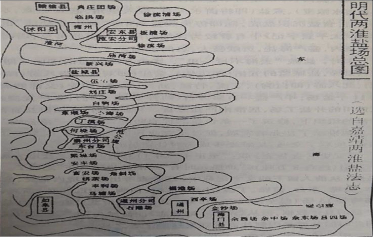 明代两淮盐场总图
选自嘉靖两淮盐法志
赣榆县
兴庄团场
临洪场
徐渎浦场
沭阳县
海州
安东县
板浦场
淮安分司
莞渎场
庙湾场
新兴场
盐城县
伍佑场
刘庄场
白驹场
草堰场
小海场
丁溪场
何垛场
泰州分司
东台场
梁垛场
安丰场
富安场
角斜场
栟茶场
丰利场
马塘场
掘港场
如皋县
通州分司
石港场
通州
西亭场
金沙场
海门县
余西场
余中场
余东场
吕四场
东
海